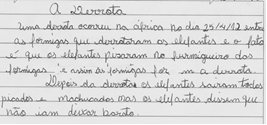 A Derrota
Uma derrota ocorreu na áfrica no dia 25/4/12 entre
as formigas que derrotaram os elefantes e o fato
é que os elefantes pizaram no furmigueiro das
formigas e assim as formigas foi m a derrota.
Depois da derrota os elefantes sairam todos
picados e machucados mas os elefantes dissem que
não iam deixar barato.